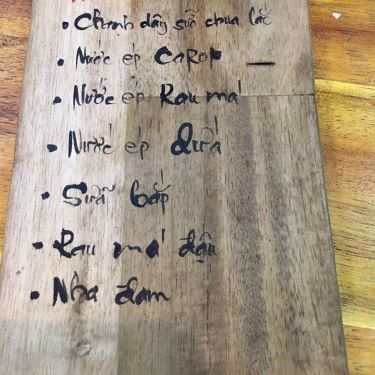 • Chanh dây sữa chua lắc
• Nước ép CaRot
• Nước ép Rau má
• Nước ép dứa
• Sữa bắp
• Rau má đậu
• Nha đam